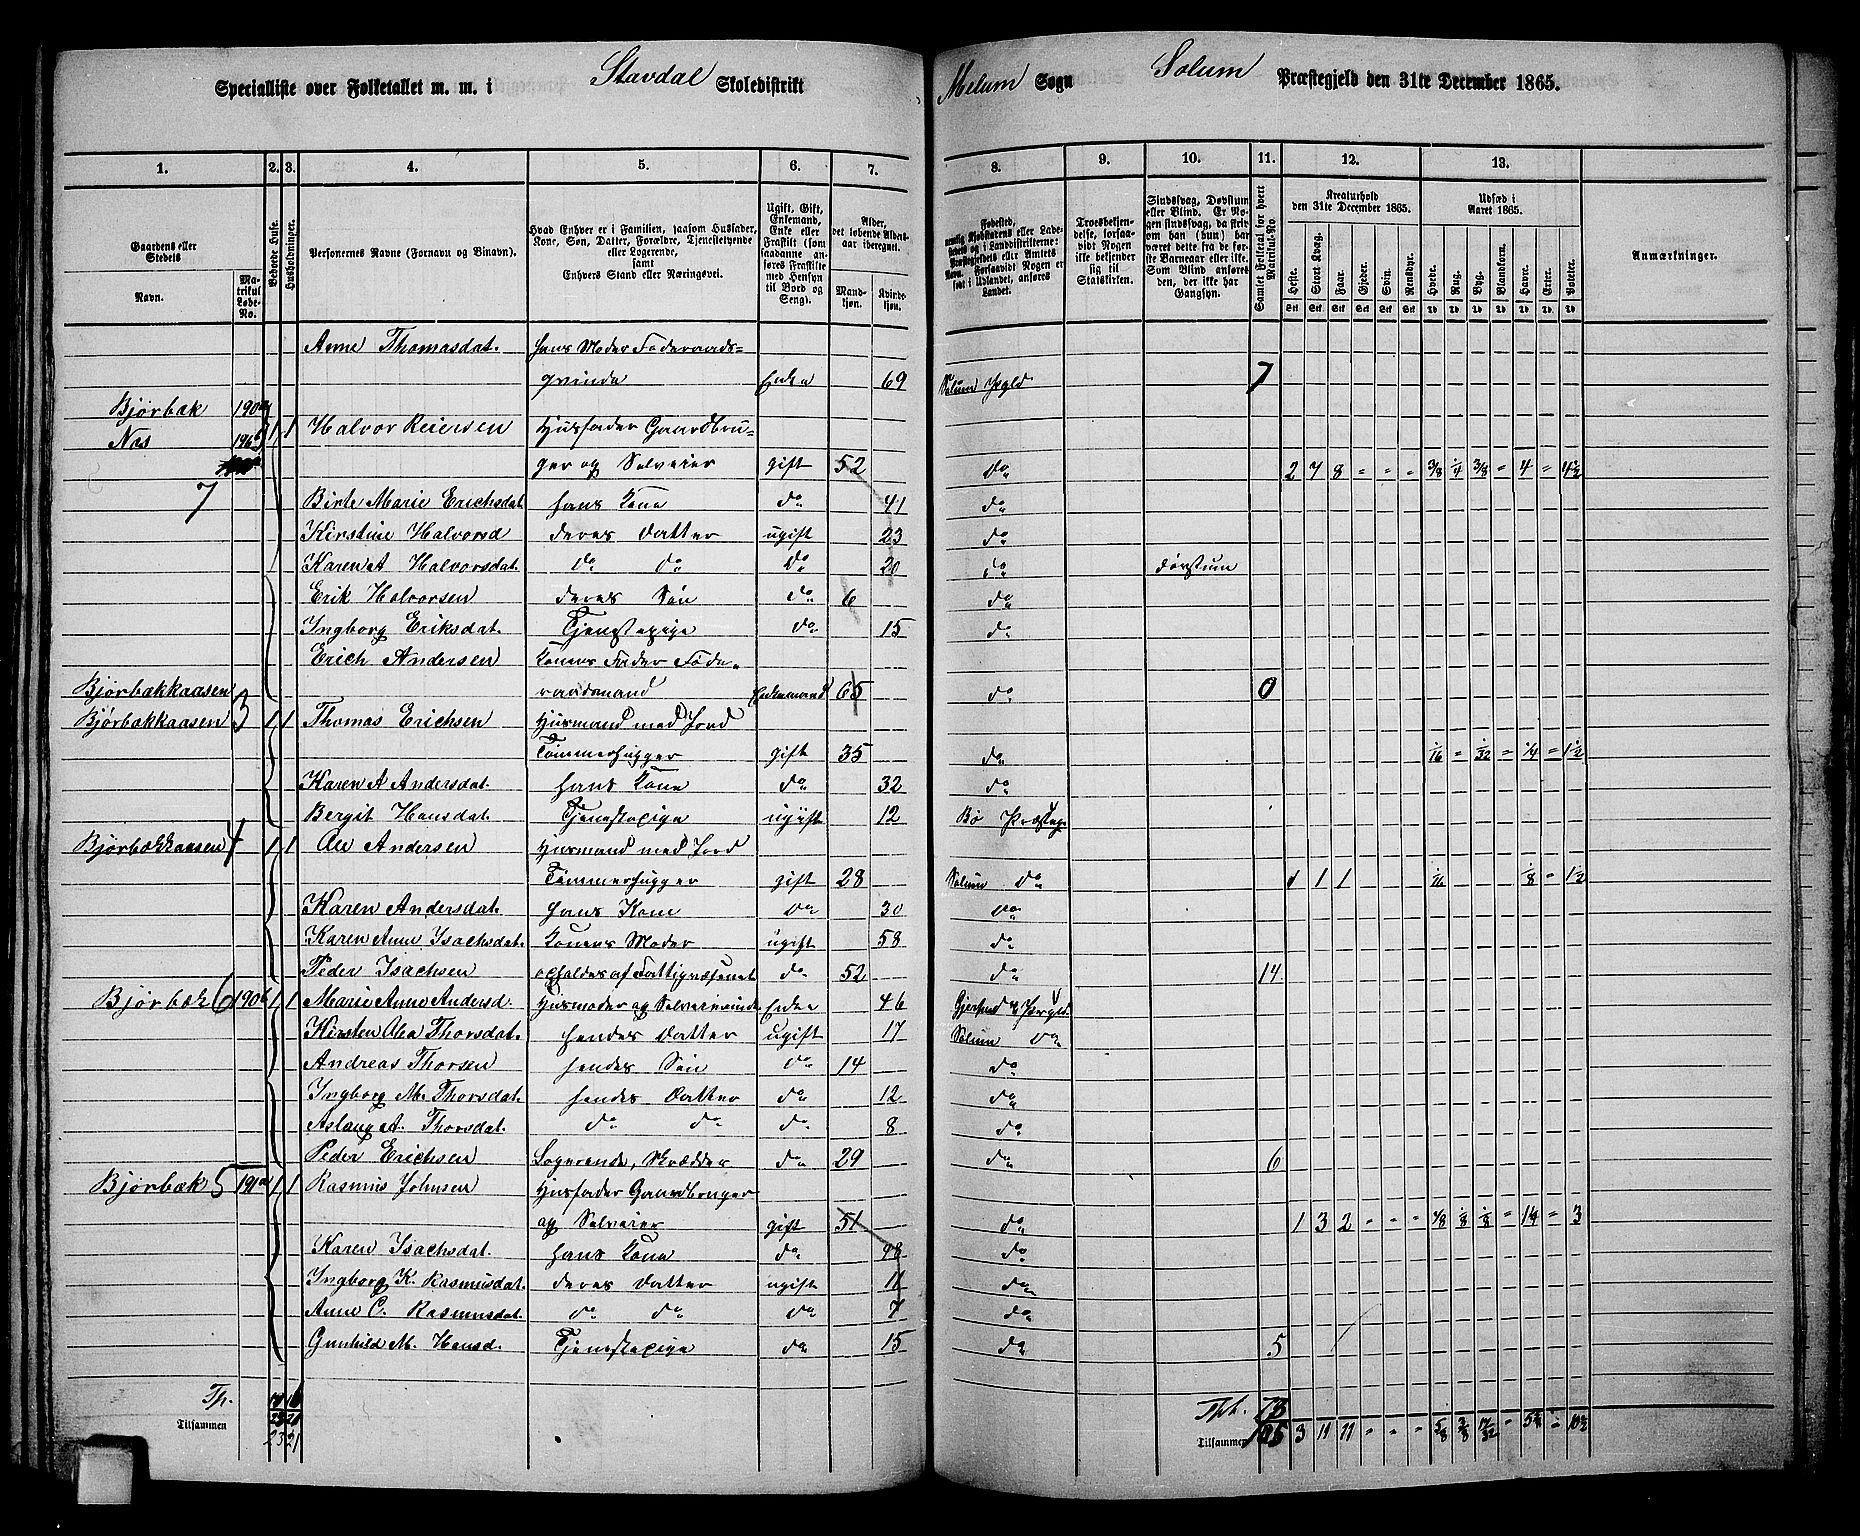 Specialliste over Folketallet m. m. i Stavdal Skoledistrikt Melum Sogn Solum Præstegjeld den 31te December 1865.
1. 2. 3. 4. 5. 6. 7. 8. 9. 10. 11. 12. 13.
Gaardens eller Stedets
Navn.
Matrikul Løbe-No.
Beboede Huse.
Husholdninger.
Personernes Navne (Fornavn og Binavn).
Hvad Enhver er i Familien, saasom Husfader, Kone, Søn, Datter, Forældre, Tjenestetyende eller Logerende, samt Enhvers Stand eller Næringsvei.
Ugift, Gift, Enkemand, Enke eller Fraskilt (som saadanne anføres Fraskilte med Hensyn til Bord og Seng).
Alder, det løbende Alders-aar iberegnet.
Mandkjøn.
Kvindekjøn.
Troesbekjendelse, forsaavidt Nogen ikke bekjender sig til Statskirken.
Sindssvag, Døvstum eller Blind. Er Nogen sindssvag, da skrives om han (hun) har været dette fra de første Barneaar eller ikke. Som Blind anføres den, der ikke har Gangsyn.
Samlet Folketal for hvert Matrikul-No
Kreaturhold den 31te December 1865.
Heste. Stort Kvæg. Faar. Gjeder. Svin. Rensdyr.
Udsæd i Aaret 1865.
Hvede. Rug. Byg. Blandkorn. Havre. Erter. Poteter.
Anmærkninger.
Anne Thomasdat. hans Moder Føderaads-
qvinde Enke 69 Solum Pgld 7
Bjørbæk 190a
Nas 196b 1 1 Halvor Reiersen Husfader Gaardbru-
ger og Selveier gift 52 do 2 7 8 - - - 3/8 1/4 3/8 = 4 = 4 1/2
7 Birte Marie Erichsdat. hans Kone do 41 do
Kirstine Halvorsd deres Datter ugift 23 do
Karen A Halvorsdat. do do do 20 do døvstum
Erik Halvorsen deres Søn do 6 do
Ingborg Eriksdat. Tjenestepige do 15 do
Erich Andersen Konens Fader Føde-
Bjørbækkaasen raadsmand Enkemand 65 do 0
Bjørbækkaasen 3 1 1 Thomas Erichsen Husmand med Jord
Tømmerhugger gift 35 do 1/16 = 1/32 = 1/4 = 1 1/2
Karen A Andersdat. hans Kone do 32 do
Bergit Hansdat. Tjenestepige ugift 12 Bø Præsteg
Bjørbækkaasen 4 1 1 Ole Andersen Husmand med Jord
Tømmerhugger gift 28 Solum do 1 1 1/16 1/8 = 1 1/2
Karen Andersdat. hans Kone do 30 do
Karen Anne Isachsdat. Konens Moder ugift 58 do
Peder Isachsen opholdes af Fattigvæsenet do 52 do 14
Bjørbæk 6 190b 1 1 Marie Anne Andersd. Husmoder og Selveierinde Enke 46 Gjerpend Prgld
Kirsten Alea Thorsdat. hendes Datter ugift 17 Solum do
Andreas Thorsen hendes Søn do 14 do
Ingborg M. Thorsdat. hendes Datter do 12 do
Aslaug A. Thorsdat. do do do 8 do
Peder Erichsen Logerende, Skrædder do 29 do 6
Bjørbæk 5 191a 1 1 Rasmus Johnsen Husfader Gaardbruger
og Selveier gift 51 do 1 3 2 - - - 1/8 1/8 = 1 1/4 = 3
Karen Isachsdat. hans Kone do 48 do
Ingborg K. Rasmusdat. deres Datter ugift 11 do
Anne C. Rasmusdat. do do do 7 do
Gunhild M. Hansd. Tjenestepige do 15 do 5
Tilsammen 23 21
Tilsammen 3 11 11 - - -